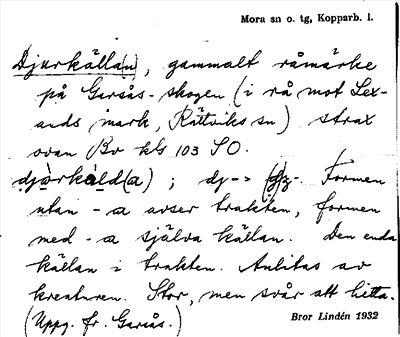 Mora sn o. tg, Kopparb. l.
Djurkälla(n), gammalt råmärke
på Garsås-skogen (i rå mot Lex-
ands mark, Rättviks sn) strax
ovan Bv kls 103 SO.
djärkälld(a); dj->
Formen
utan -a avser trakten, formen
med -a själva källan. Den enda
källan i trakten. Anlitas av
kreaturen. Stor, men svår att hitta.
(Uppg. fr. Garsås.)
Bror Lindén 1932